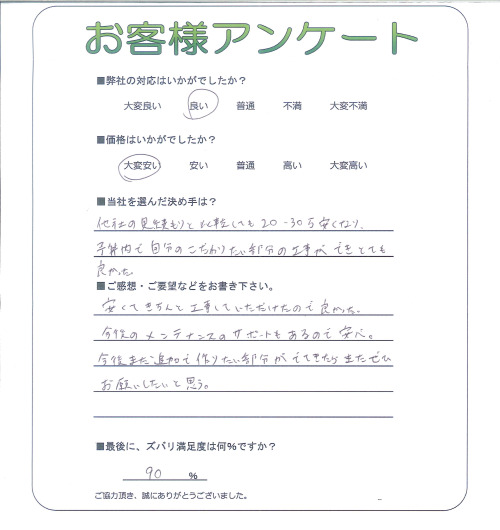 お客様アンケート
■弊社の対応はいかがでしたか？
大変良い 良い 普通 不満 大変不満
■価格はいかがでしたか？
大変安い 安い 普通 高い 大変高い
■当社を選んだ決め手は？
他社の見積もりと比較しても20-30万安くなり、
予算内で自分のこだわりたい部分の工事ができとても
良かった。
■ご感想・ご要望などをお書き下さい。
安くてきちんと工事していただけたので良かった。
今後のメンテナンスのサポートもあるので安心。
今後また追加で作りたい部分がでてきたらまたぜひ
お願いしたいと思う。
■最後に、ズバリ満足度は何％ですか？
90 %
ご協力頂き、誠にありがとうございました。